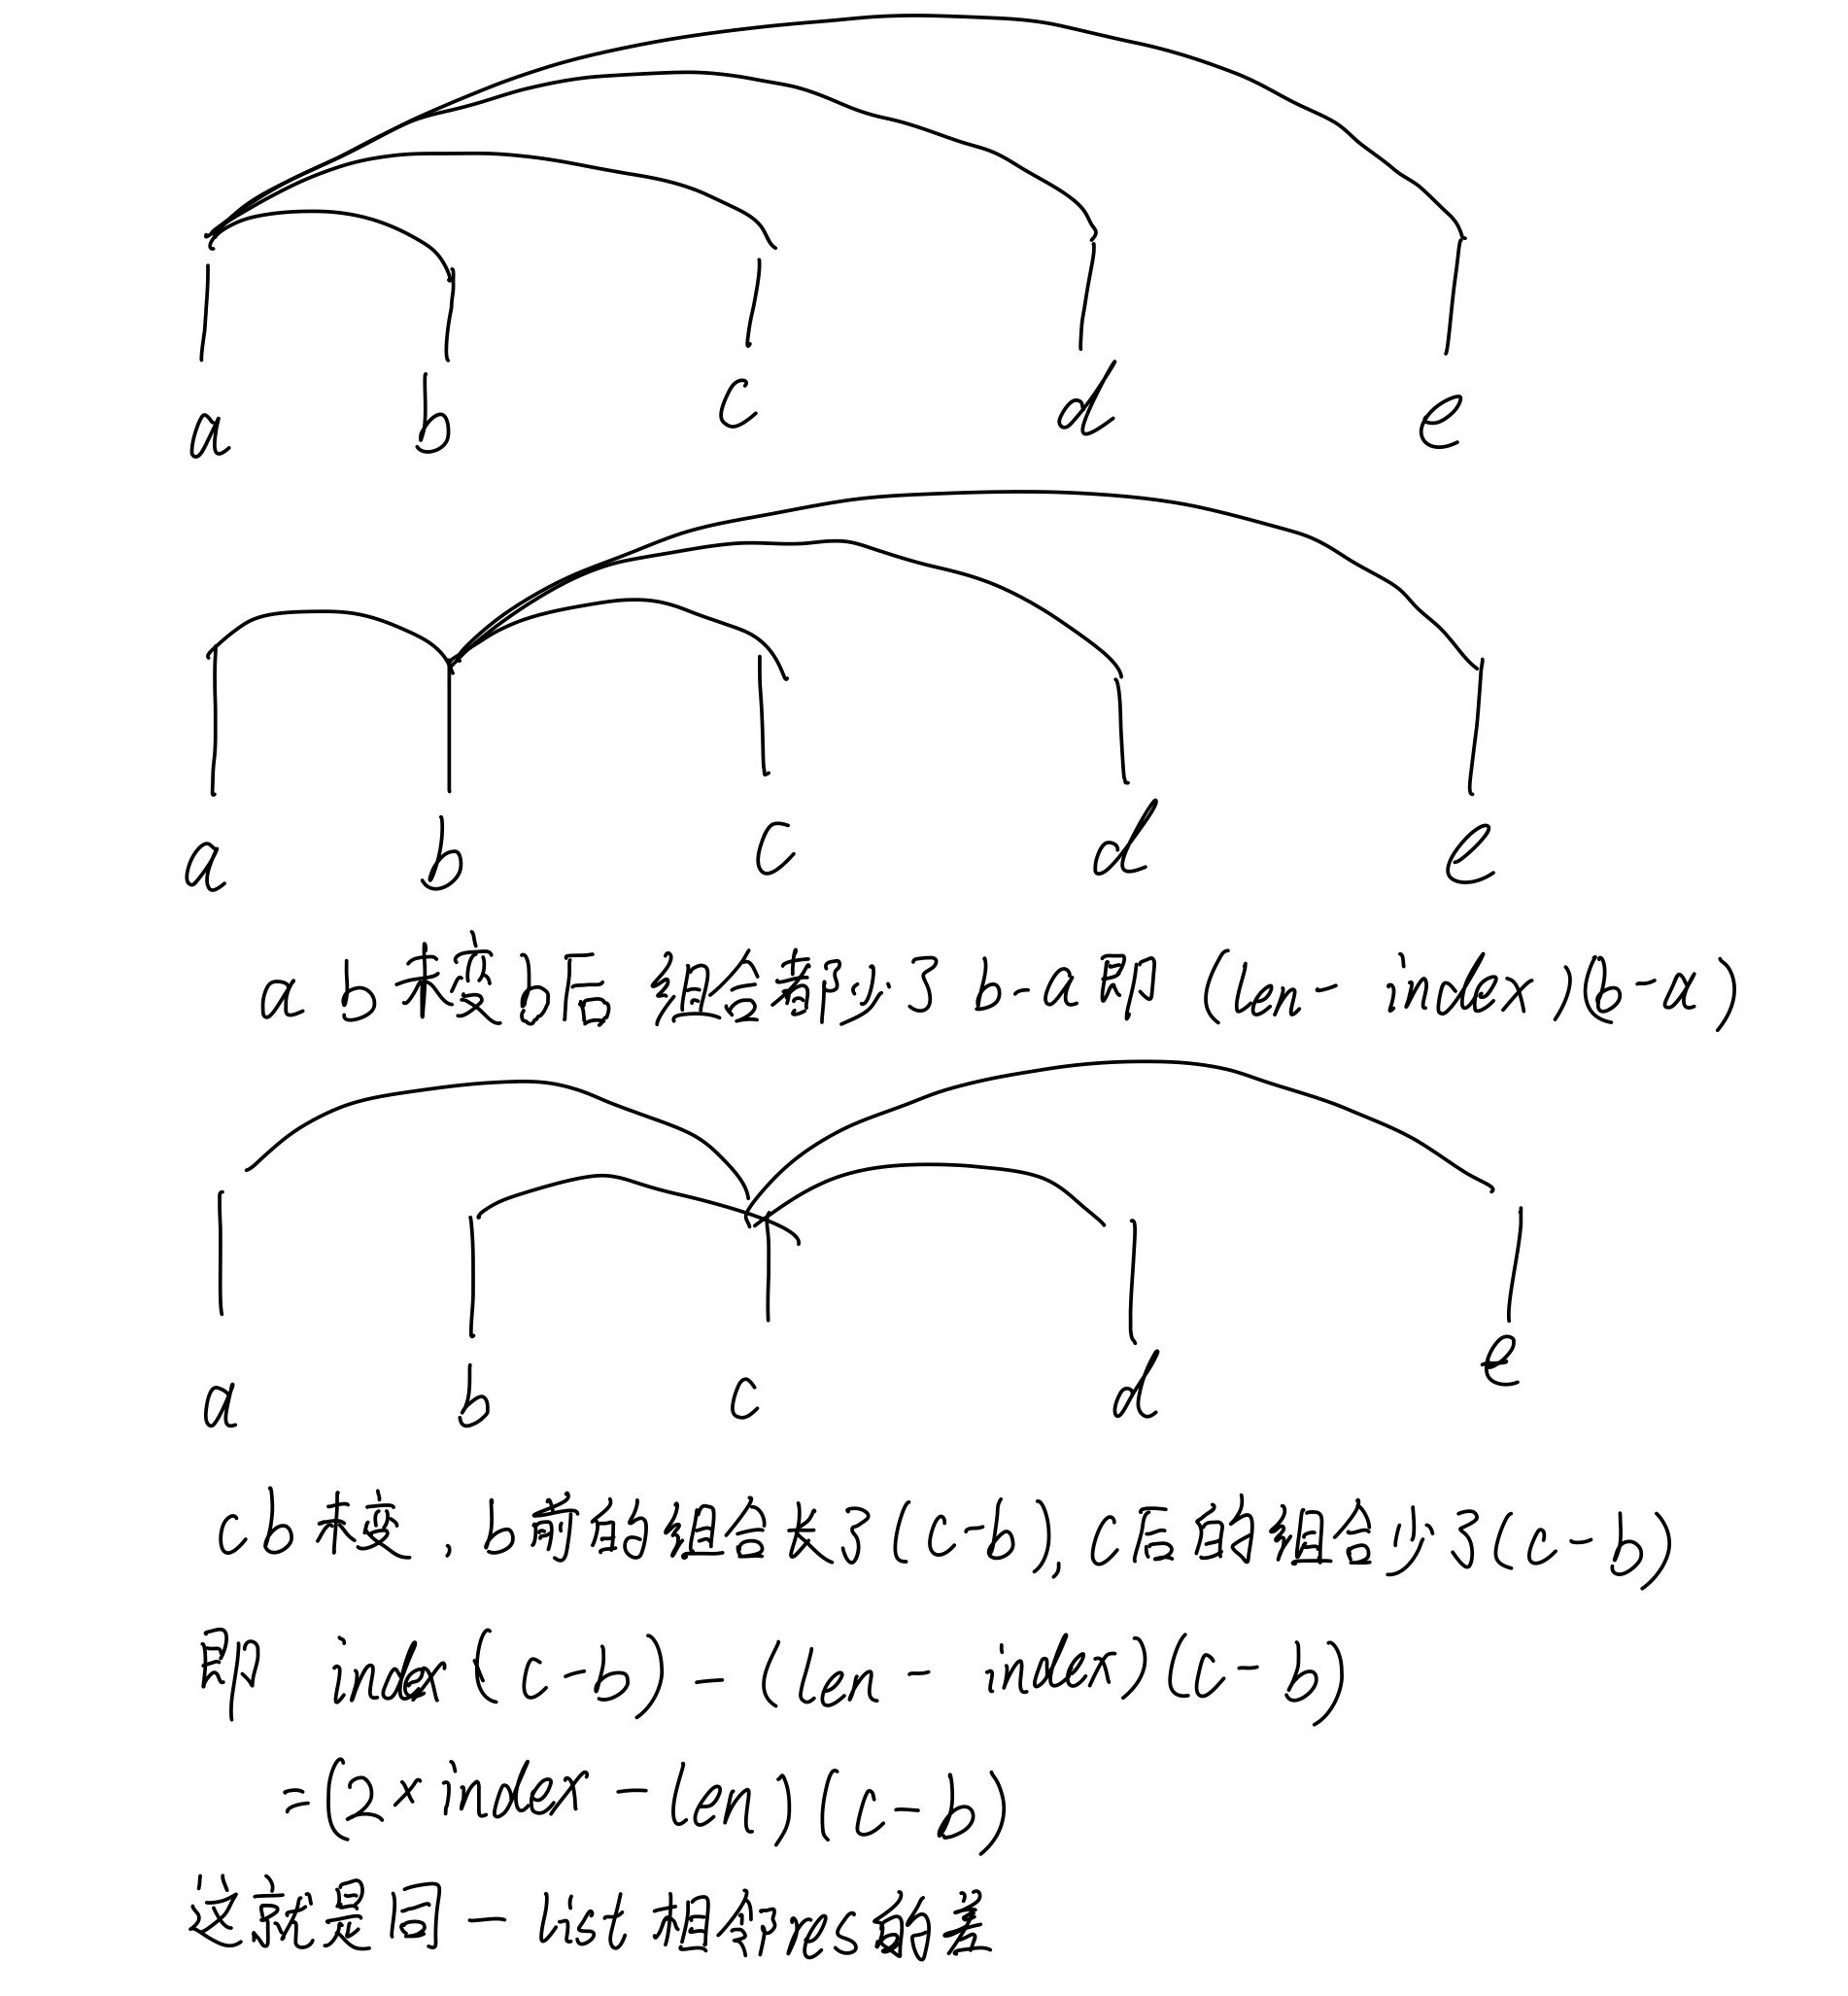 a b c d e
a b c d e
a b 求变b后 组合都少了 b-a 即 (len- index)(b-a)
a b c d e
c b 求变, b前的组合长了(c-b), c后的组合少了(c-b)
即 index(c-b) - (len - index)(c-b)
=(2×index-len)(c-b)
这就是同一list相邻res的差